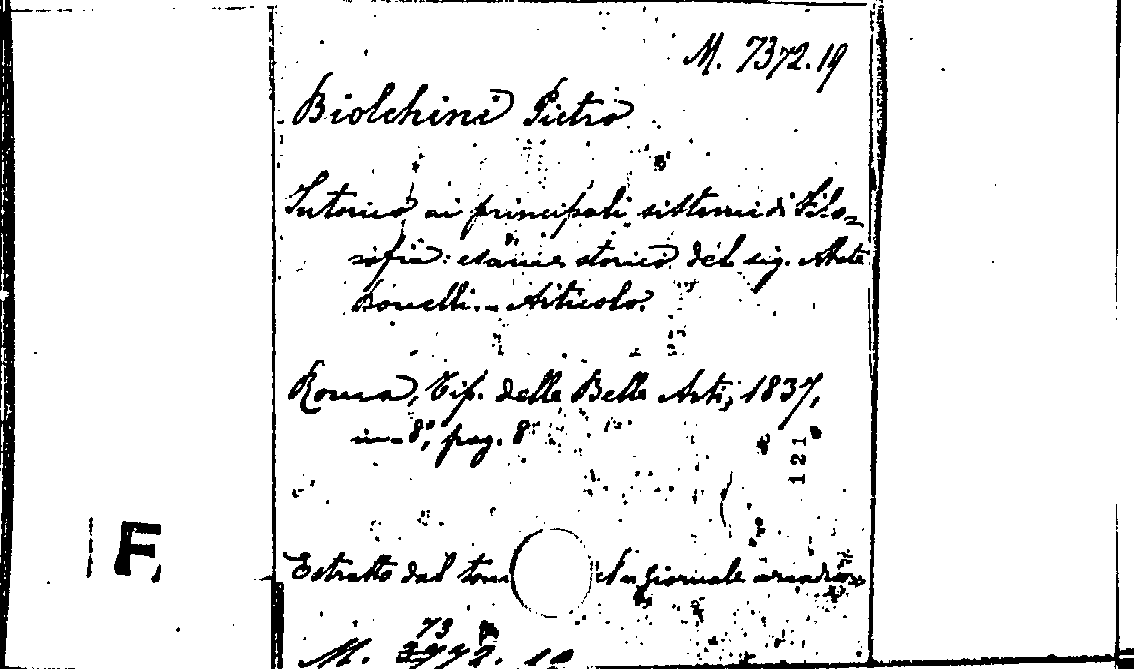 M. 7372.19
Biolchini Pietro
Intorno ai principali sistemi di Filo-
sofia: esame storico del sig. Abate
Bonelli. - Articolo.
Roma, Tip. delle Belle Arti, 1837,
in-8°, pag. 8
121
Estratto dal tom Giornale arcadico
F
M. 73 72. 19